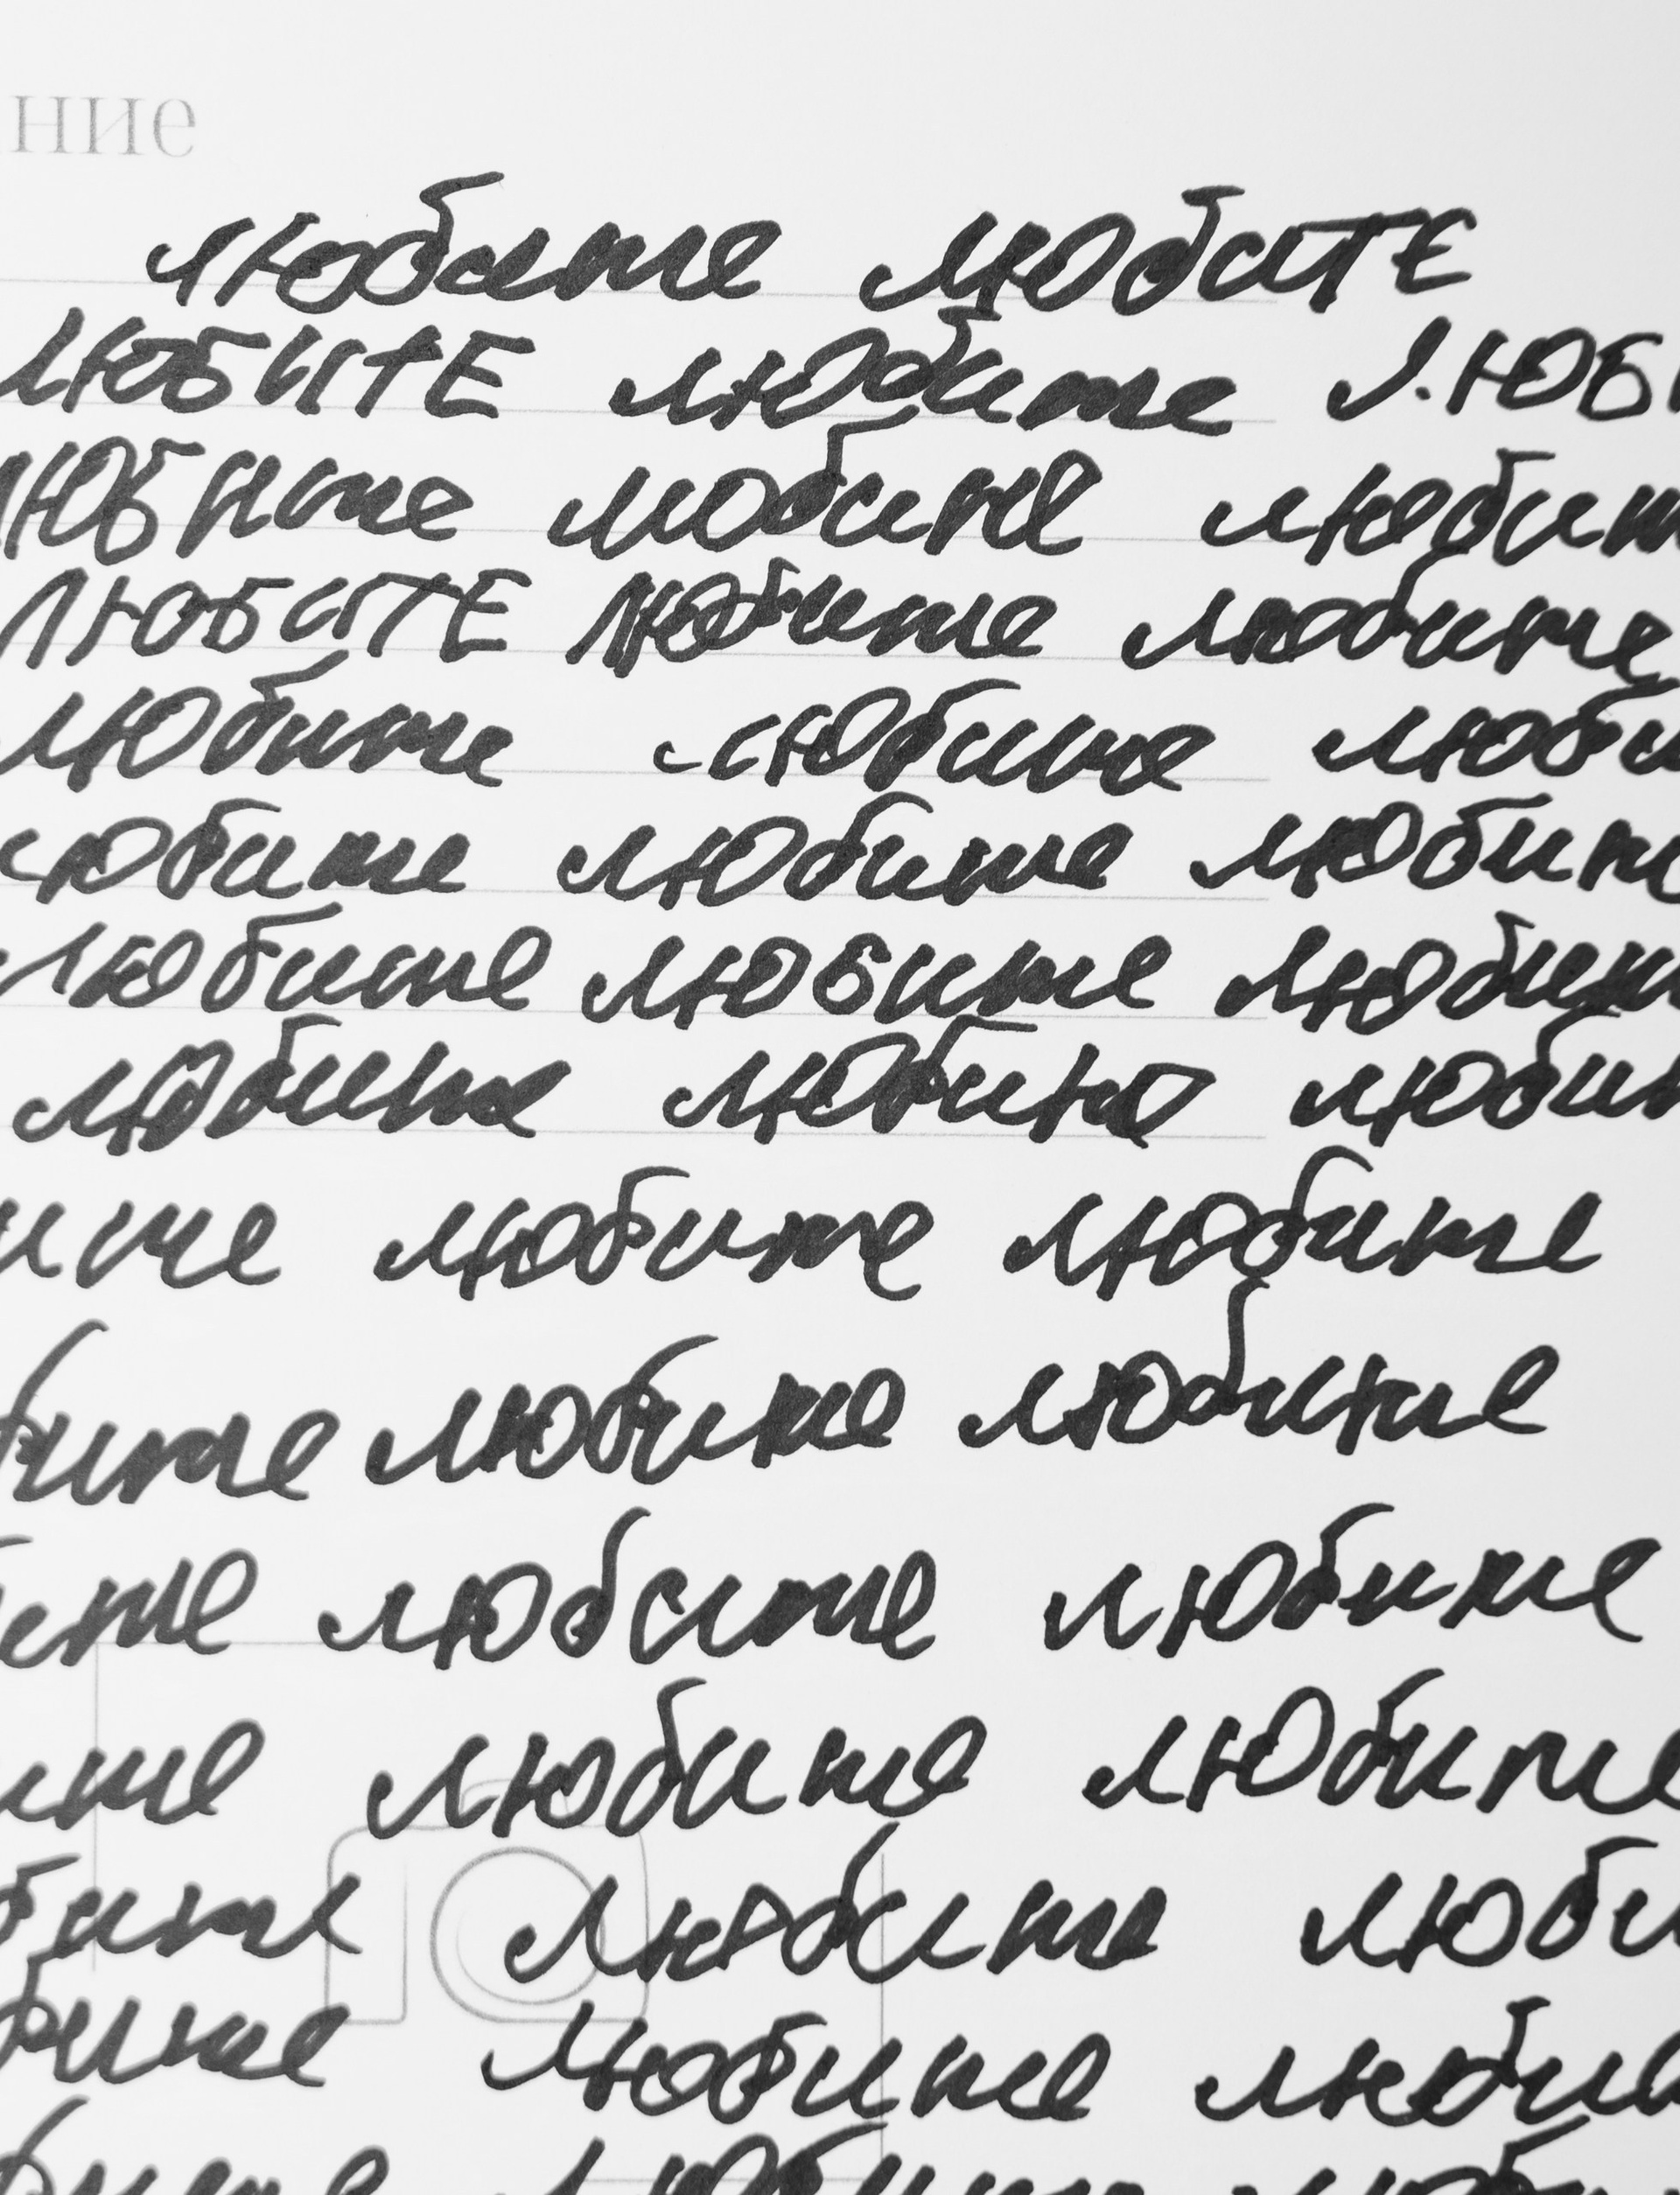 ние
любите любите
ЛЮБИТЕ любите ЛЮБИ
юбите любите любит
ЛЮБИТЕ любите любите
любите любите люби
юбите любите любит
любите любите любит
любите любите любит
ите любите любите
бите любите любите
ите любите любите
ите любите любите
бите любите люби
бите любите любит
бите любите любит